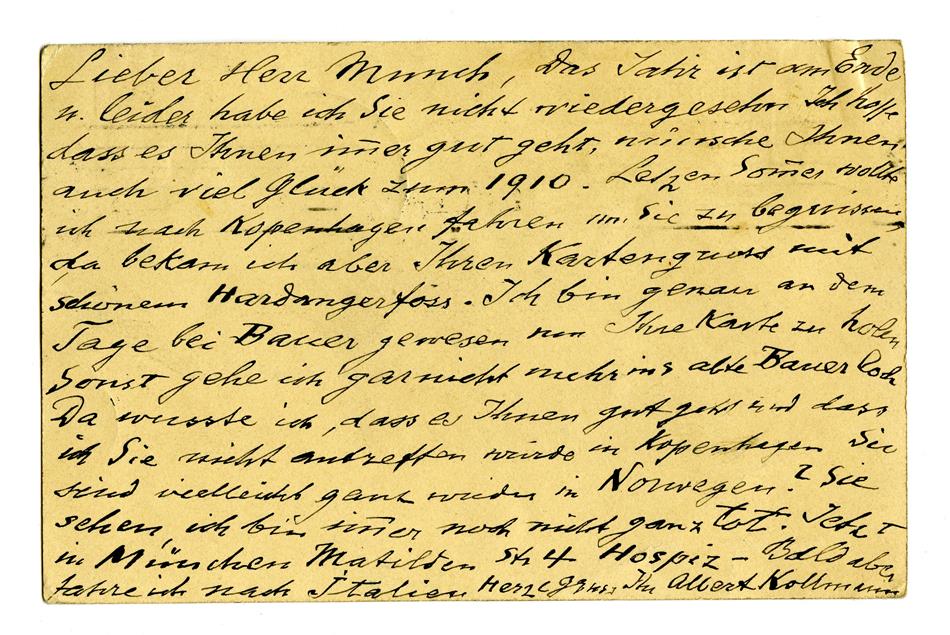 Lieber Herr Munch, das Jahr ist am Ende
u. leider habe ich Sie nicht wiedergesehn Ich hoffe
dass es Ihnen im̄er gut geht, wünsche Ihnen
auch viel Glück zum 1910. Letzen Som̄er wollte
ich nach Kopenhagen fahren um Sie zu begruissen,
da bekam ich aber Ihren Kartengruss mit
schönem Hardangerfoss. Ich bin genau an dem
Tage bei Bauer gewesen um Ihre Karte zu holen
Sonst gehe ich garnicht mehr ins alte Bauer loch
Da wusste ich, dass es Ihnen gut geht und dass
ich Sie nicht antreffen würde in Kopenhagen Sie
sind vielleicht ganz wieder in Norwegen? Sie
sehen, ich bin im̄er noch nicht ganz tot. Jetzt
in München Matilden Str 4 Hospiz – Bald aber
fahre ich nach Italien Herzl Ihr Albert Kollmann